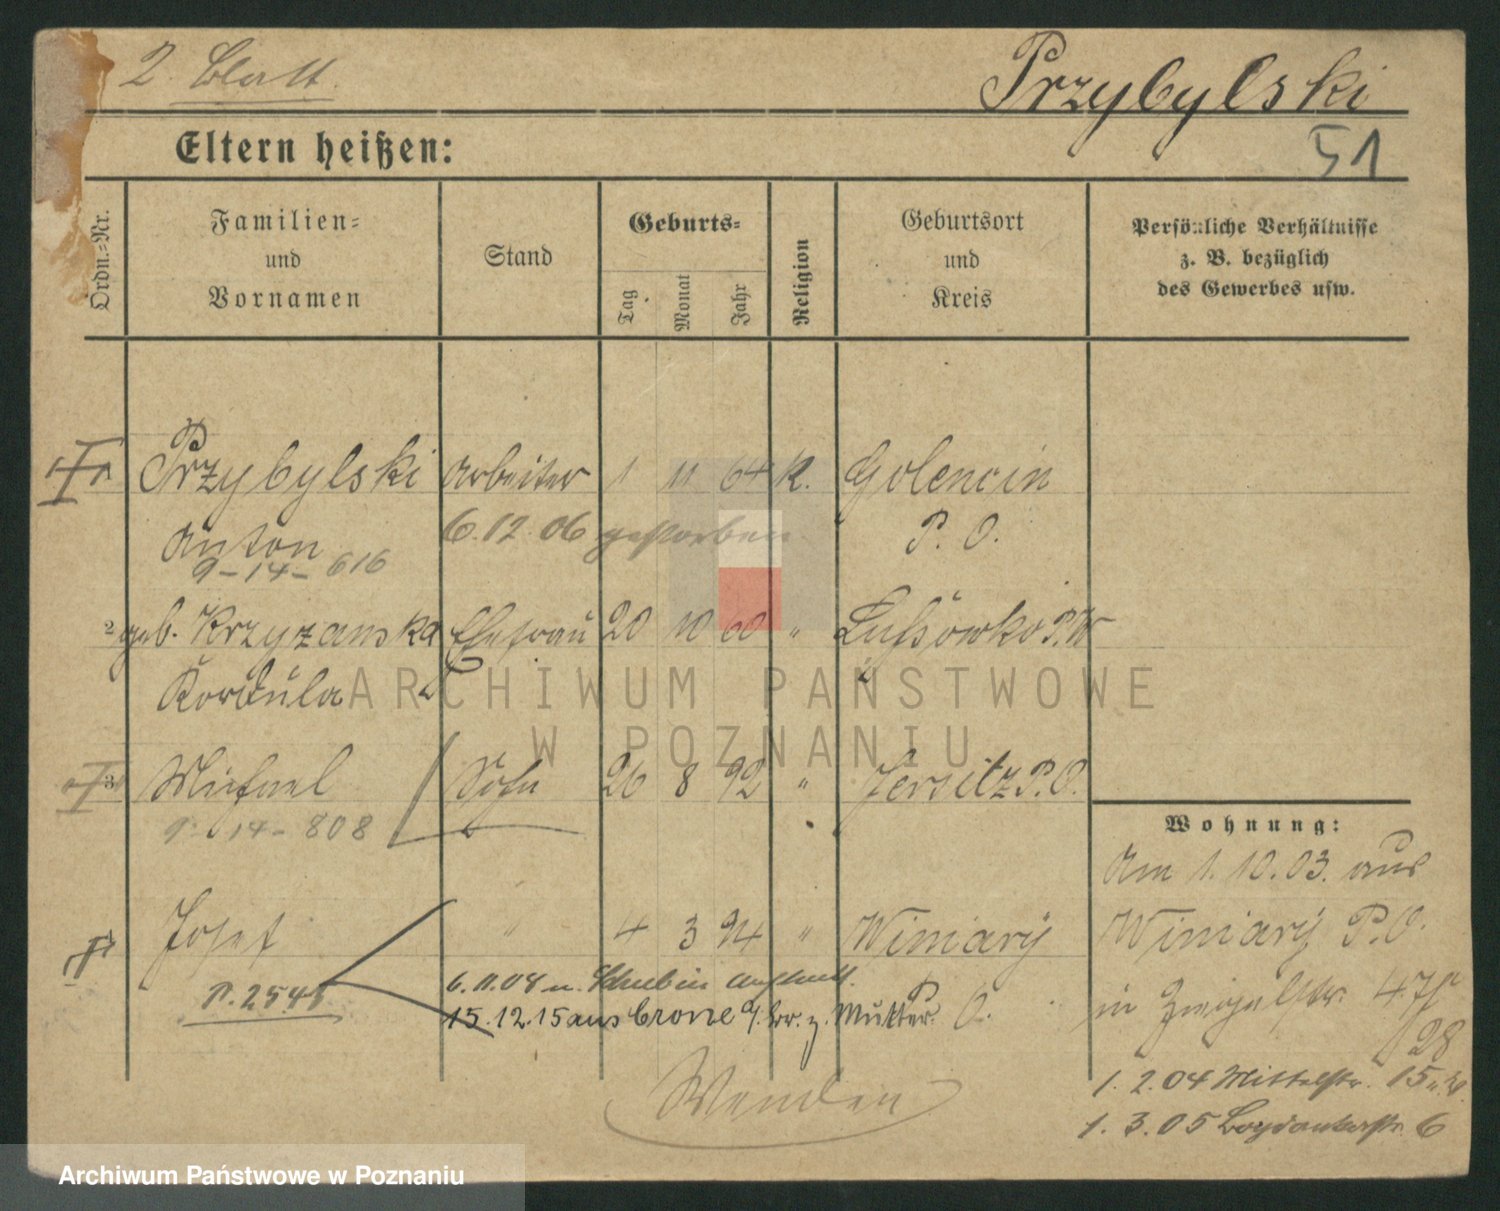 2. Blatt
Przybylski
51
Eltern heißen:
Ordn.-Nr.
Familien-
und
Vornamen
Stand
Geburts-
Tag
Monat
Jahr
Religion
Geburtsort
und
Kreis
Persönliche Verhältnisse
z. B. bezüglich
des Gewerbes usw.
Przybylski Arbeiter 1 11 64 K. Golencin
Anton 6.12.06 gestorben P. O.
9-14-616
2 geb. Krzyzanska Ehefrau 20 10 60 " Lussowko P.W
Kordula
ARCHIWUM PAŃSTWOWE
W POZNANIU
3 Michael Sohn 26 8 92 " Jersitz P. O.
9-14-808
Wohnung:
Am 1.10.03. aus
Josef " 4 3 94 " Winiary
Winiary P.O.
P. 2545
6.11.08 n. Schubin
15.12.15 aus Crone z. Mutter. P. O.
in
28
Wenden
1.2.04 Mittelstr. 15
1.3.05 Bogdankastr. 6
Archiwum Państwowe w Poznaniu